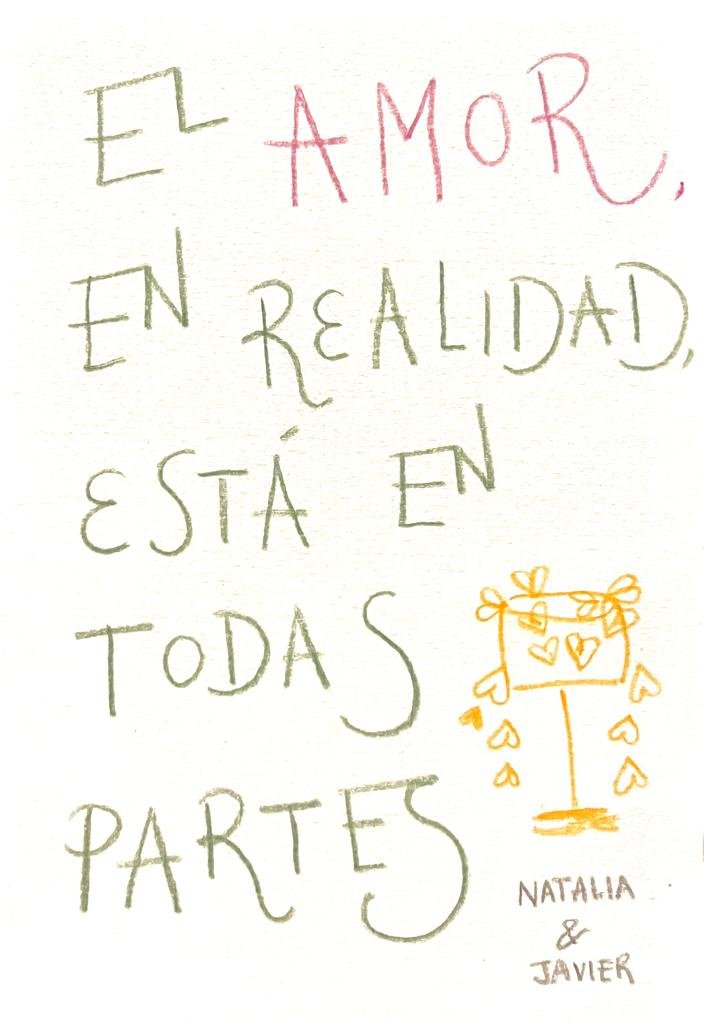 EL AMOR,
EN REALIDAD,
ESTÁ EN
TODAS
PARTES
NATALIA
&
JAVIER